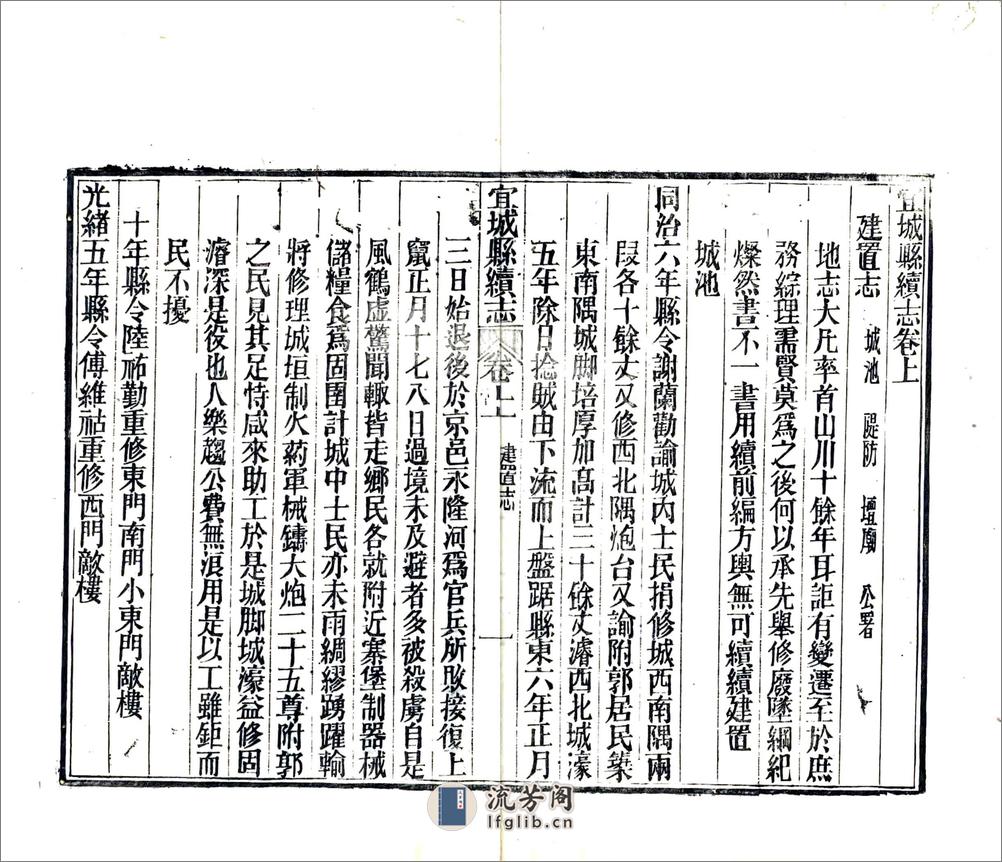 宜城縣續志卷上
建置志 城池 隄防 壇廟 公署
地志大凡率首山川十餘年耳詎有變遷至於庶
務綜理需賢莫爲之後何以承先舉修廢墜綱紀
燦然書不一書用續前編方輿無可續續建置
城池
同治六年縣令謝蘭勸諭城內士民捐修城西南隅兩
段各十餘丈又修西北隅炮台又諭附郭居民築
東南隅城脚培厚加高計三十餘丈濬西北城濠
五年除日捻賊由下流而上盤踞縣東六年正月
宜城縣續志 卷上 建置志 一
三日始退後於京邑永隆河爲官兵所敗接復上
竄正月十七八日過境未及避者多被殺虜自是
風鶴虛驚聞輙皆走鄉民各就附近寨堡制器械
儲糧食爲固圉計城中士民亦未雨綢繆踴躍輸
將修理城垣制火药軍械鑄大炮二十五尊附郭
之民見其足恃咸來助工於是城脚城濠益修固
濬深是役也人樂趨公費無浪用是以工雖鉅而
民不擾
十年縣令陸祐勤重修東門南門小東門敵樓
光緒五年縣令傅維祜重修西門敵樓
流芳阁
lfglib.cn